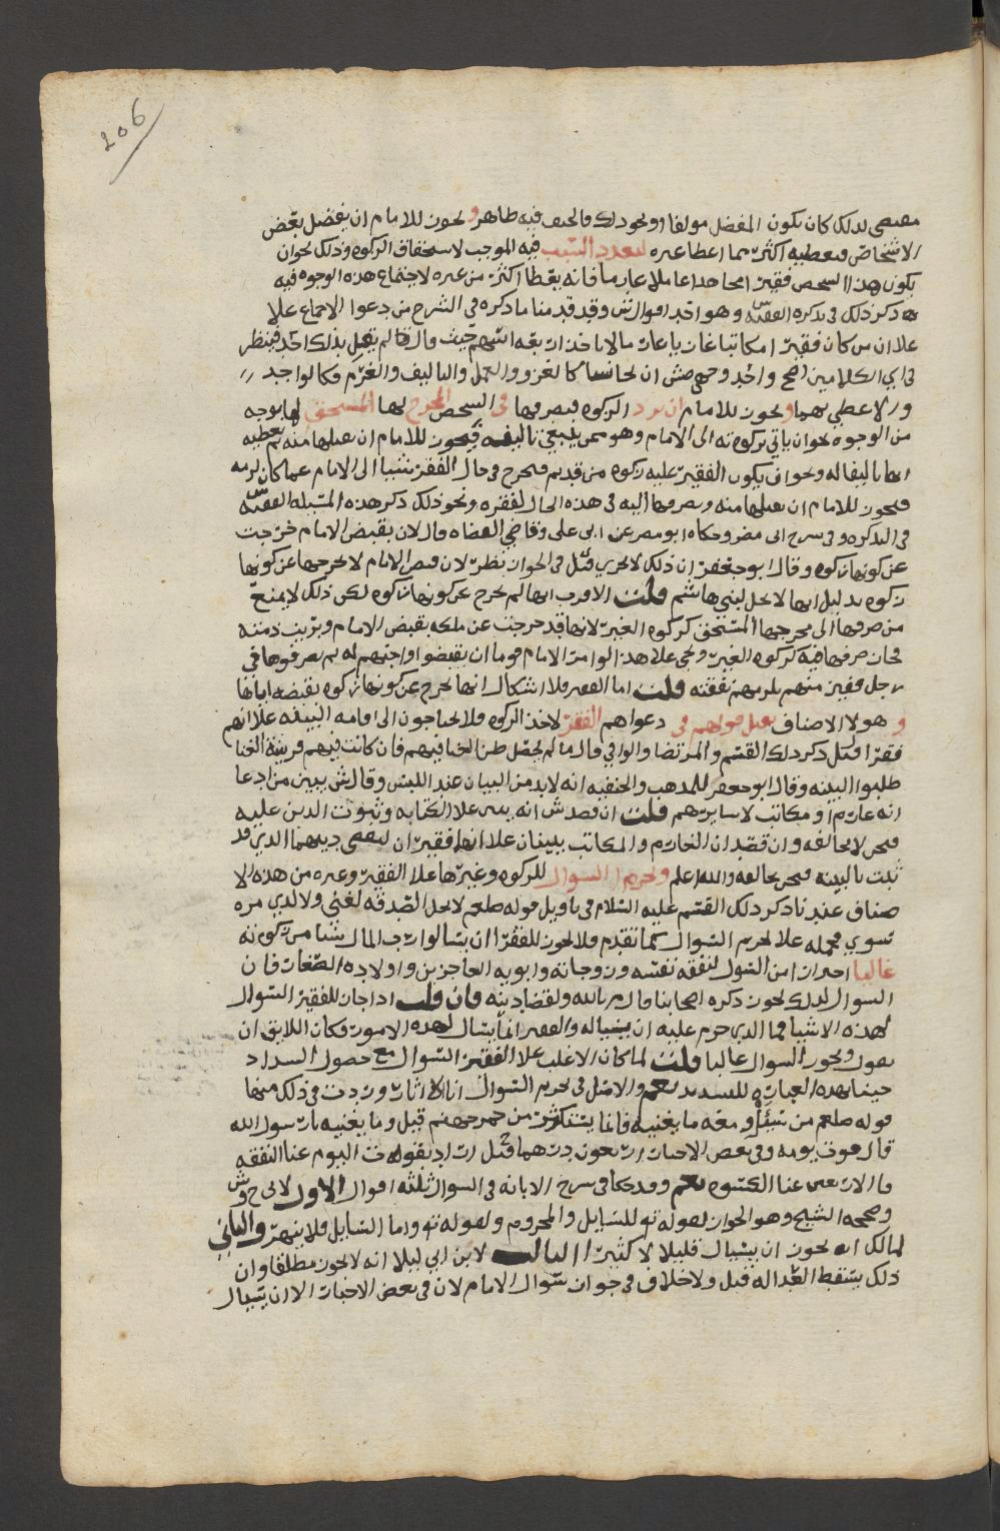 206
مقتضى لذلك كان يكون المفضل مولفا او نحو ذلك فالحيف فيه ظاهر و نحوز للامام ان يفضل بعض
الاشخاص فيعطيه اكثر مما اعطا غيره لتعدد السبب فيه الموجب لاستحقاق الزكوه وذلك نحو ان
يكون هذا الشخص فقيرا مجاهدا عاملا غارما فانه يعطا اكثر من غيره لاجتماع هذه الوجوه فيه
ذكر ذلك في تذكره الفقيه س وهو احد اقوال ش وقد قدمنا ما ذكره في الشرح من دعوا الاجماع علا
علا ان من كان فقيرا مكاتبا غازيا غارما لا ياخذ اربعة اسهم حيث قال فالم يقل بذلك احد فينظر
في اي الكلامين اصح و احد وجهي ش ان تجانسا كالغزو والعمل والتاليف والغرم فكالواحد
والا عطي بهما و نحوز للامام ان يرد الزكوه فيصرفها في الشخص المخرج لها المستحق لها بوجه
من الوجوه نحو ان ياتي بزكوته الى الامام وهو ممن ينبغي تاليفه فيجوز للامام ان يقبلها منه ثم يعطيه
اياها تاليفا له ونحو ان يكون الفقير عليه زكوه من قديم فيخرج في حال الفقر شيئا الى الامام عما كان لزمه
فيجوز للامام ان يقبلها منه ويصرفها اليه في هذه الحال لفقره ونحو ذلك ذكر هذه المسئله الفقيه س
في التذكره و في شرح ابي مضر وحكاه ابو مضر عن ابي علي وقاضي القضاه قال لان بقبض الامام خرجت
عن كونها زكوه وقال ابو جعفر ان ذلك لا يجزي قيل في الجواز نظر لان قبض الامام لا يخرجها عن كونها
زكوه بدليل انها لا تحل لبني هاشم قلت الاقرب انها لم تخرج عن كونها زكوه لكن ذلك لا يمنع
من صرفها الى مخرجها المستحق كزكوه الغير لانها قد خرجت عن ملكه بقبض الامام وبريت ذمته
فجاز صرفها فيه كزكوه الغير وعلا هذا لو امر الامام قوما ان يقبضوا واجبهم له ثم يصرفوها في
رجل فقير منهم يلزمهم نفقته قلت اما الفقير فلا اشكال انها تخرج عن كونها زكوه بقبضه اياها
و هولا الاصناف يقبل قولهم في دعواهم الفقر لاخذ الزكوه فلا يحتاجون الى اقامه البينه علا انهم
فقرا قيل ذكر ذلك القسم والمرتضا والوافي قال ما لم يحصل ظن الغنا فيهم فان كانت فيهم قرينه الغنا
طلبوا البينه وقال ابو جعفر للمذهب والحنفيه انه لا بد من البيان عند اللبس وقال ش يبين من ادعا
انه غارم او مكاتب لا سايرهم قلت ان قصد ش انه يبين علا الكتابه وثبوت الدين عليه
فنحن لا نخالفه وان قصد ان الغارم والمكاتب يبينان علا انهما فقيران ليقضى دينهما الذي قد
ثبت بالبينه فنحن نخالفه والله اعلم و تحريم السوال للزكوه وغيرها علا الفقير وغيره من هذه الا
صناف عندنا ذكر ذلك القسم عليه السلام في تاويل قوله صلعم لا تحل الصدقه لغني ولا لذي مره
سوي فحمله علا تحريم السوال كما تقدم فلا يجوز للفقرا ان يسالوا رب المال شيئا من زكوته
غالبا احترازا من السول لنفقه نفسه وزوجاته وابويه العاجزين واولاده الصغار فان
السوال لذلك يجوز ذكره اصحابنا قال م بالله ولقضا دينه فان قلت اذا جاز للفقير السوال
لهذه الاشيا فما الذي حرم عليه ان يسياله والفقير انما يسال لهذه الامور فكان اللايق ان
يقول ويجوز السوال غالبا قلت لما كان الاغلب علا الفقير السوال مع حصول السداد
جينا بهذه العباره للتسديد نعم والاصل في تحريم السوال اثار وردت في ذلك منها
قوله صلعم من سئل و معه ما يغنيه فانما يستكثر من جمر جهنم قيل وما يغنيه يا رسول الله
قال قوت يومه وفي بعض الاخبار اربعون درهما قيل اراد بقوله قوت اليوم غنا النفقه
وبالاربعين غنا الكسوه نعم وقد حكا في شرح الابانه في السوال ثلثه اقوال الاول لابي ح وش
وصححه الشيخ وهو الجواز لقوله تع للسايل والمحروم ولقوله تع واما السايل فلا تنهر والثاني
لمالك انه يجوز ان يسال قليلا لا كثيرا الثالث لابن ابي ليلا انه لا يجوز مطلقا وان
ذلك يسقط العداله قيل ولا خلاف في جواز سوال الامام لان في بعض الاخبار الا ان يسال